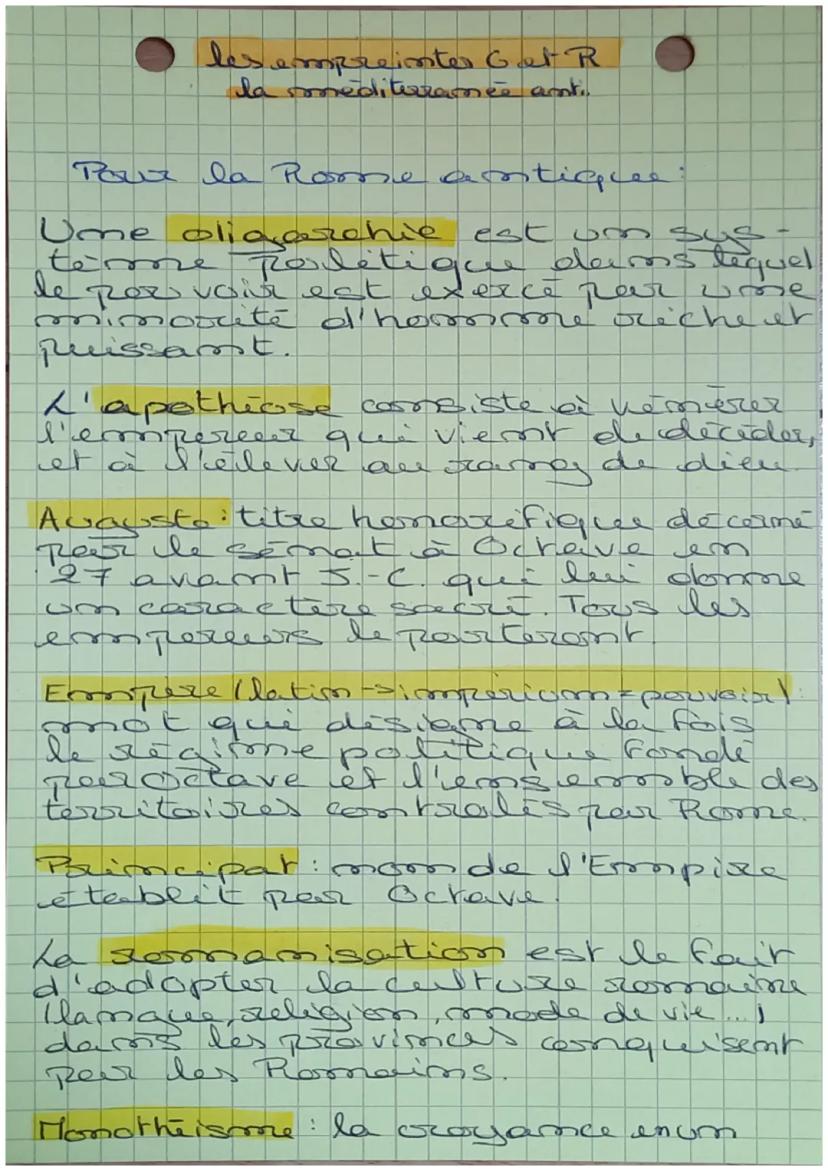 les empreintes G et R
la méditerranée anti.
Pour la Rome antique :
Une oligarchie est un sys-
tème politique dans lequel
le pouvoir est exercé par une
minorité d'homme riche et
puissant.
L'apothéose consiste à vénérer
l'empereur qui vient de décéder,
et à l'élever au rang de dieu.
Auguste : titre honorifique décerné
par le Sénat à Octave en
27 avant J.-C. qui lui donne
un caractère sacré. Tous les
empereurs le porteront.
Empire (latin -> impérium = pouvoir) :
mot qui désigne à la fois
le régime politique fondé
par Octave et l'ensemble des
territoires contrôlés par Rome.
Principat : nom de l'Empire
établit par Octave.
La romanisation est le fait
d'adopter la culture romaine
(langue, religion, mode de vie...)
dans les provinces conquisent
par les Romains.
Monothéisme : la croyance en un